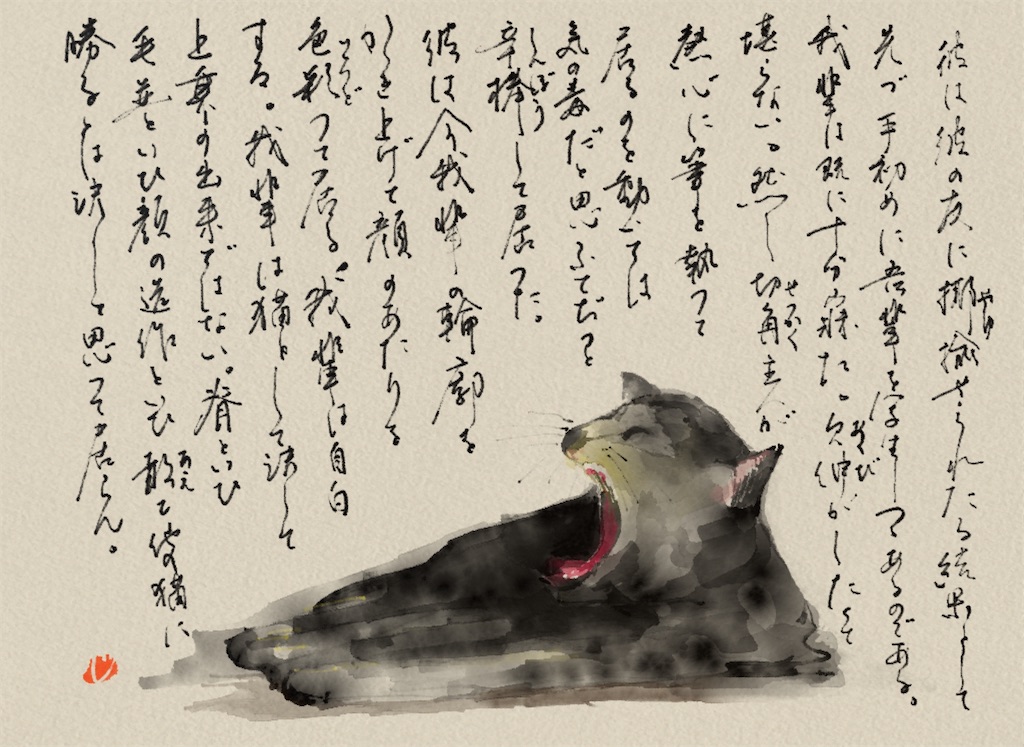 彼は彼の友に揶揄やゆせられたる結果として
先づ手初めに吾輩を写生しつつあるのである。
我輩は既に十分寝た。欠伸あくびがしたくて
堪らない。然し切角せっかく主人が
熱心に筆を執って
居るのを動いては
気の毒だと思ふてじっと
辛棒しんぼうして居った。
彼は今我輩の輪廓を
かき上げて顔のあたりを
色彩いろどって居る。我輩は自白
する。我輩は猫として決して
上乗の出来ではない。脊といひ
毛並といひ顔の造作といひ敢あえて猫に
勝るとは決して思って居らん。